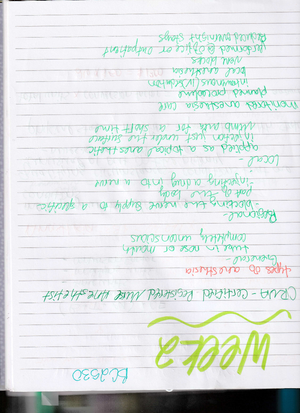 Week 2
CRNA - Certified Registered Nurse Anesthetist
types of anesthesia
General -
tube in nose or mouth
completely unconscious
Regional -
- blocking the nerve supply to a specific
part of the body
- injecting a drug into a nerve
Local -
applied as a topical anesthetic
Injection just under the surface
Numb for a short time
monitored anesthesia care
planned procedure
intravenous sedation
local anesthesia
Nerve blocks
performed @ office or outpatient
overnight stays